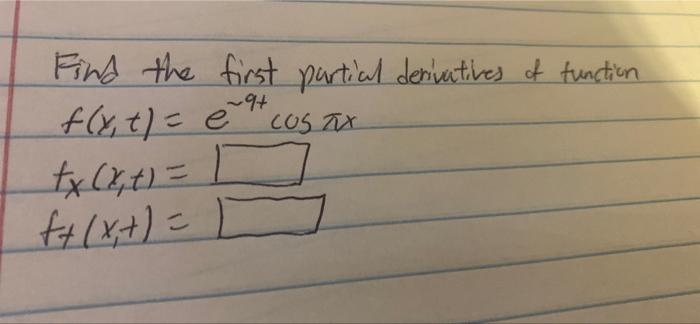 Find the first partial derivatives of function
f(x,t) = e^-9t cos πx
fx(x,t) =
ft(x,t) =